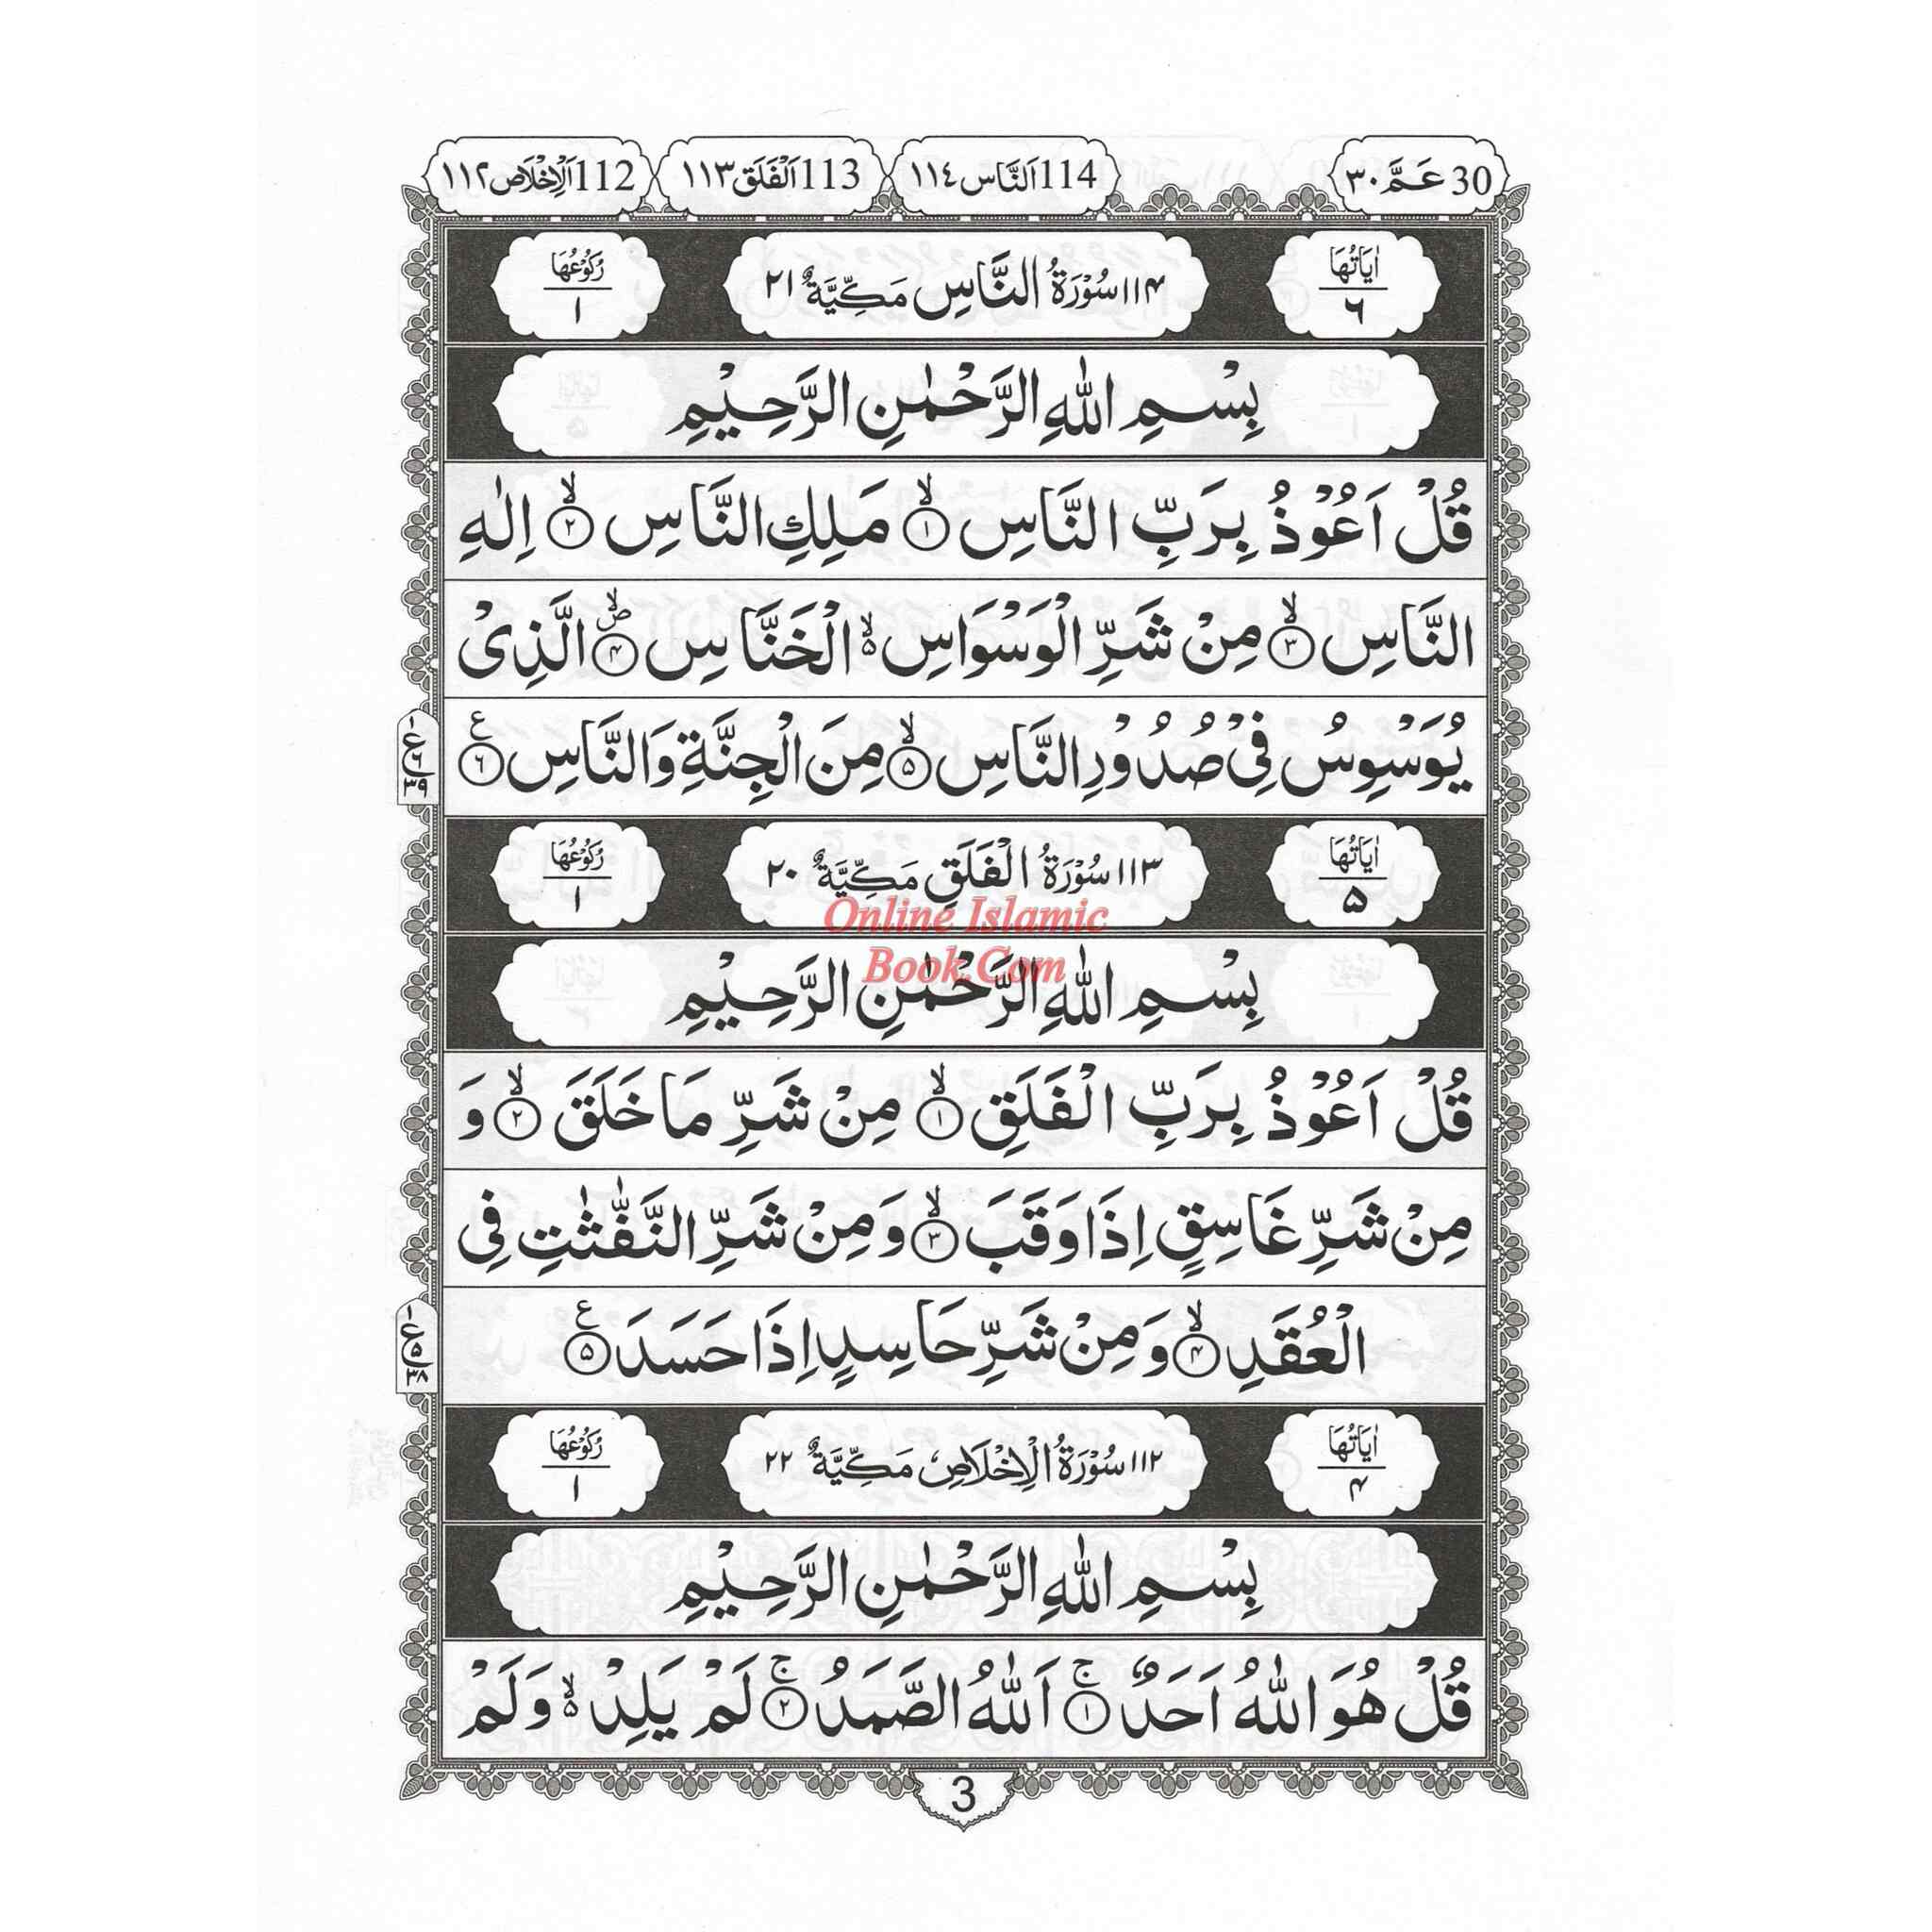 30 عَمَّ ٣٠ 114 اَلنَّاس ١١٤ 113 اَلْفَلَق ١١٣ 112 اَلْاِخْلَاص ١١٢
اٰيَاتُهَا ٦ ١١۴ سُوْرَةُ النَّاسِ مَكِّيَّةٌ ٢١ رُكُوْعُهَا ١
بِسْمِ اللّٰهِ الرَّحْمٰنِ الرَّحِيْمِ
قُلْ اَعُوْذُ بِرَبِّ النَّاسِ ۙ﴿١﴾ مَلِكِ النَّاسِ ۙ﴿٢﴾ اِلٰهِ
النَّاسِ ۙ﴿٣﴾ مِنْ شَرِّ الْوَسْوَاسِ ۵ۙ الْخَنَّاسِ ۙص﴿۴﴾ الَّذِىْ
يُوَسْوِسُ فِىْ صُدُوْرِ النَّاسِ ۙ﴿۵﴾ مِنَ الْجِنَّةِ وَالنَّاسِ ع﴿٦﴾
١ ع ٦ ٣٩
اٰيَاتُهَا ۵ ١١٣ سُوْرَةُ الْفَلَقِ مَكِّيَّةٌ ٢٠ رُكُوْعُهَا ١
Online Islamic
Book.Com
بِسْمِ اللّٰهِ الرَّحْمٰنِ الرَّحِيْمِ
قُلْ اَعُوْذُ بِرَبِّ الْفَلَقِ ۙ﴿١﴾ مِنْ شَرِّ مَا خَلَقَ ۙ﴿٢﴾ وَ
مِنْ شَرِّ غَاسِقٍ اِذَا وَقَبَ ۙ﴿٣﴾ وَمِنْ شَرِّ النَّفّٰثٰتِ فِى
الْعُقَدِ ۙ﴿۴﴾ وَمِنْ شَرِّ حَاسِدٍ اِذَا حَسَدَ ع﴿۵﴾
١ ع ۵ ٣٨
اٰيَاتُهَا ۴ ١١٢ سُوْرَةُ الْاِخْلَاصِ مَكِّيَّةٌ ٢٢ رُكُوْعُهَا ١
بِسْمِ اللّٰهِ الرَّحْمٰنِ الرَّحِيْمِ
قُلْ هُوَ اللّٰهُ اَحَدٌ ۚ﴿١﴾ اَللّٰهُ الصَّمَدُ ۚ﴿٢﴾ لَمْ يَلِدْ ۵ۙ وَلَمْ
3